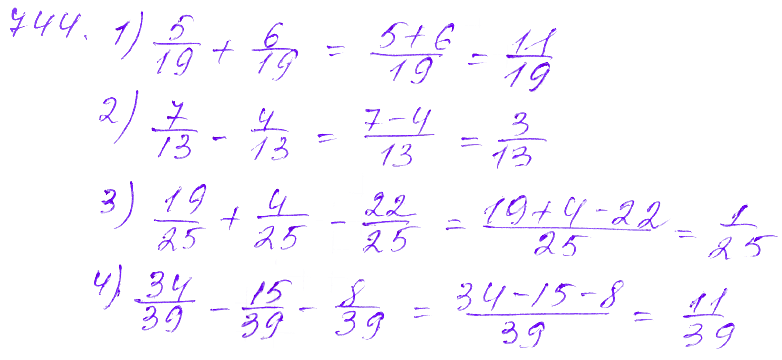 744. 1) 5/19 + 6/19 = (5+6)/19 = 11/19
2) 7/13 - 4/13 = (7-4)/13 = 3/13
3) 19/25 + 4/25 - 22/25 = (19+4-22)/25 = 1/25
4) 34/39 - 15/39 - 8/39 = (34-15-8)/39 = 11/39